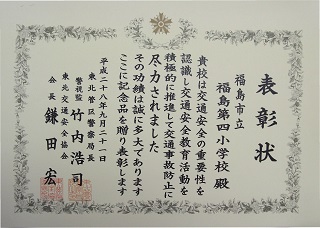 表彰状
福島市立
福島第四小学校殿
貴校は交通安全の重要性を
認識し交通安全教育活動を
積極的に推進して交通事故防止に
尽力されました
その功績は誠に多大であります
ここに記念品を贈り表彰します
平成二十八年九月二十一日
東北管区警察局長
警視監 竹内浩司
東北交通安全協会
会長 鎌田宏